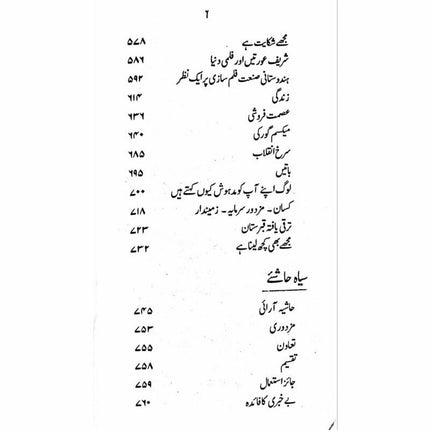 ۶
مجھے شکایت ہے ۵۷۸
شریف عورتیں اور فلمی دنیا ۵۸۶
ہندوستانی صنعت فلم سازی پر ایک نظر ۵۹۲
زندگی ۶۱۴
عصمت فروشی ۶۳۶
میکسم گورکی ۶۴۰
سرخ انقلاب ۶۸۵
باتیں ۶۹۵
لوگ اپنے آپ کو مدہوش کیوں کہتے ہیں ۷۰۰
کسان - مزدور سرمایہ - زمیندار ۷۱۸
ترقی یافتہ قبرستان ۷۲۳
مجھے بھی کچھ کہنا ہے ۷۳۲
سیاہ حاشئے
حاشیہ آرائی ۷۴۵
مزدوری ۷۵۳
تعاون ۷۵۵
تقسیم ۷۵۸
جائز استعمال ۷۵۹
بے خبری کا فائدہ ۷۶۰